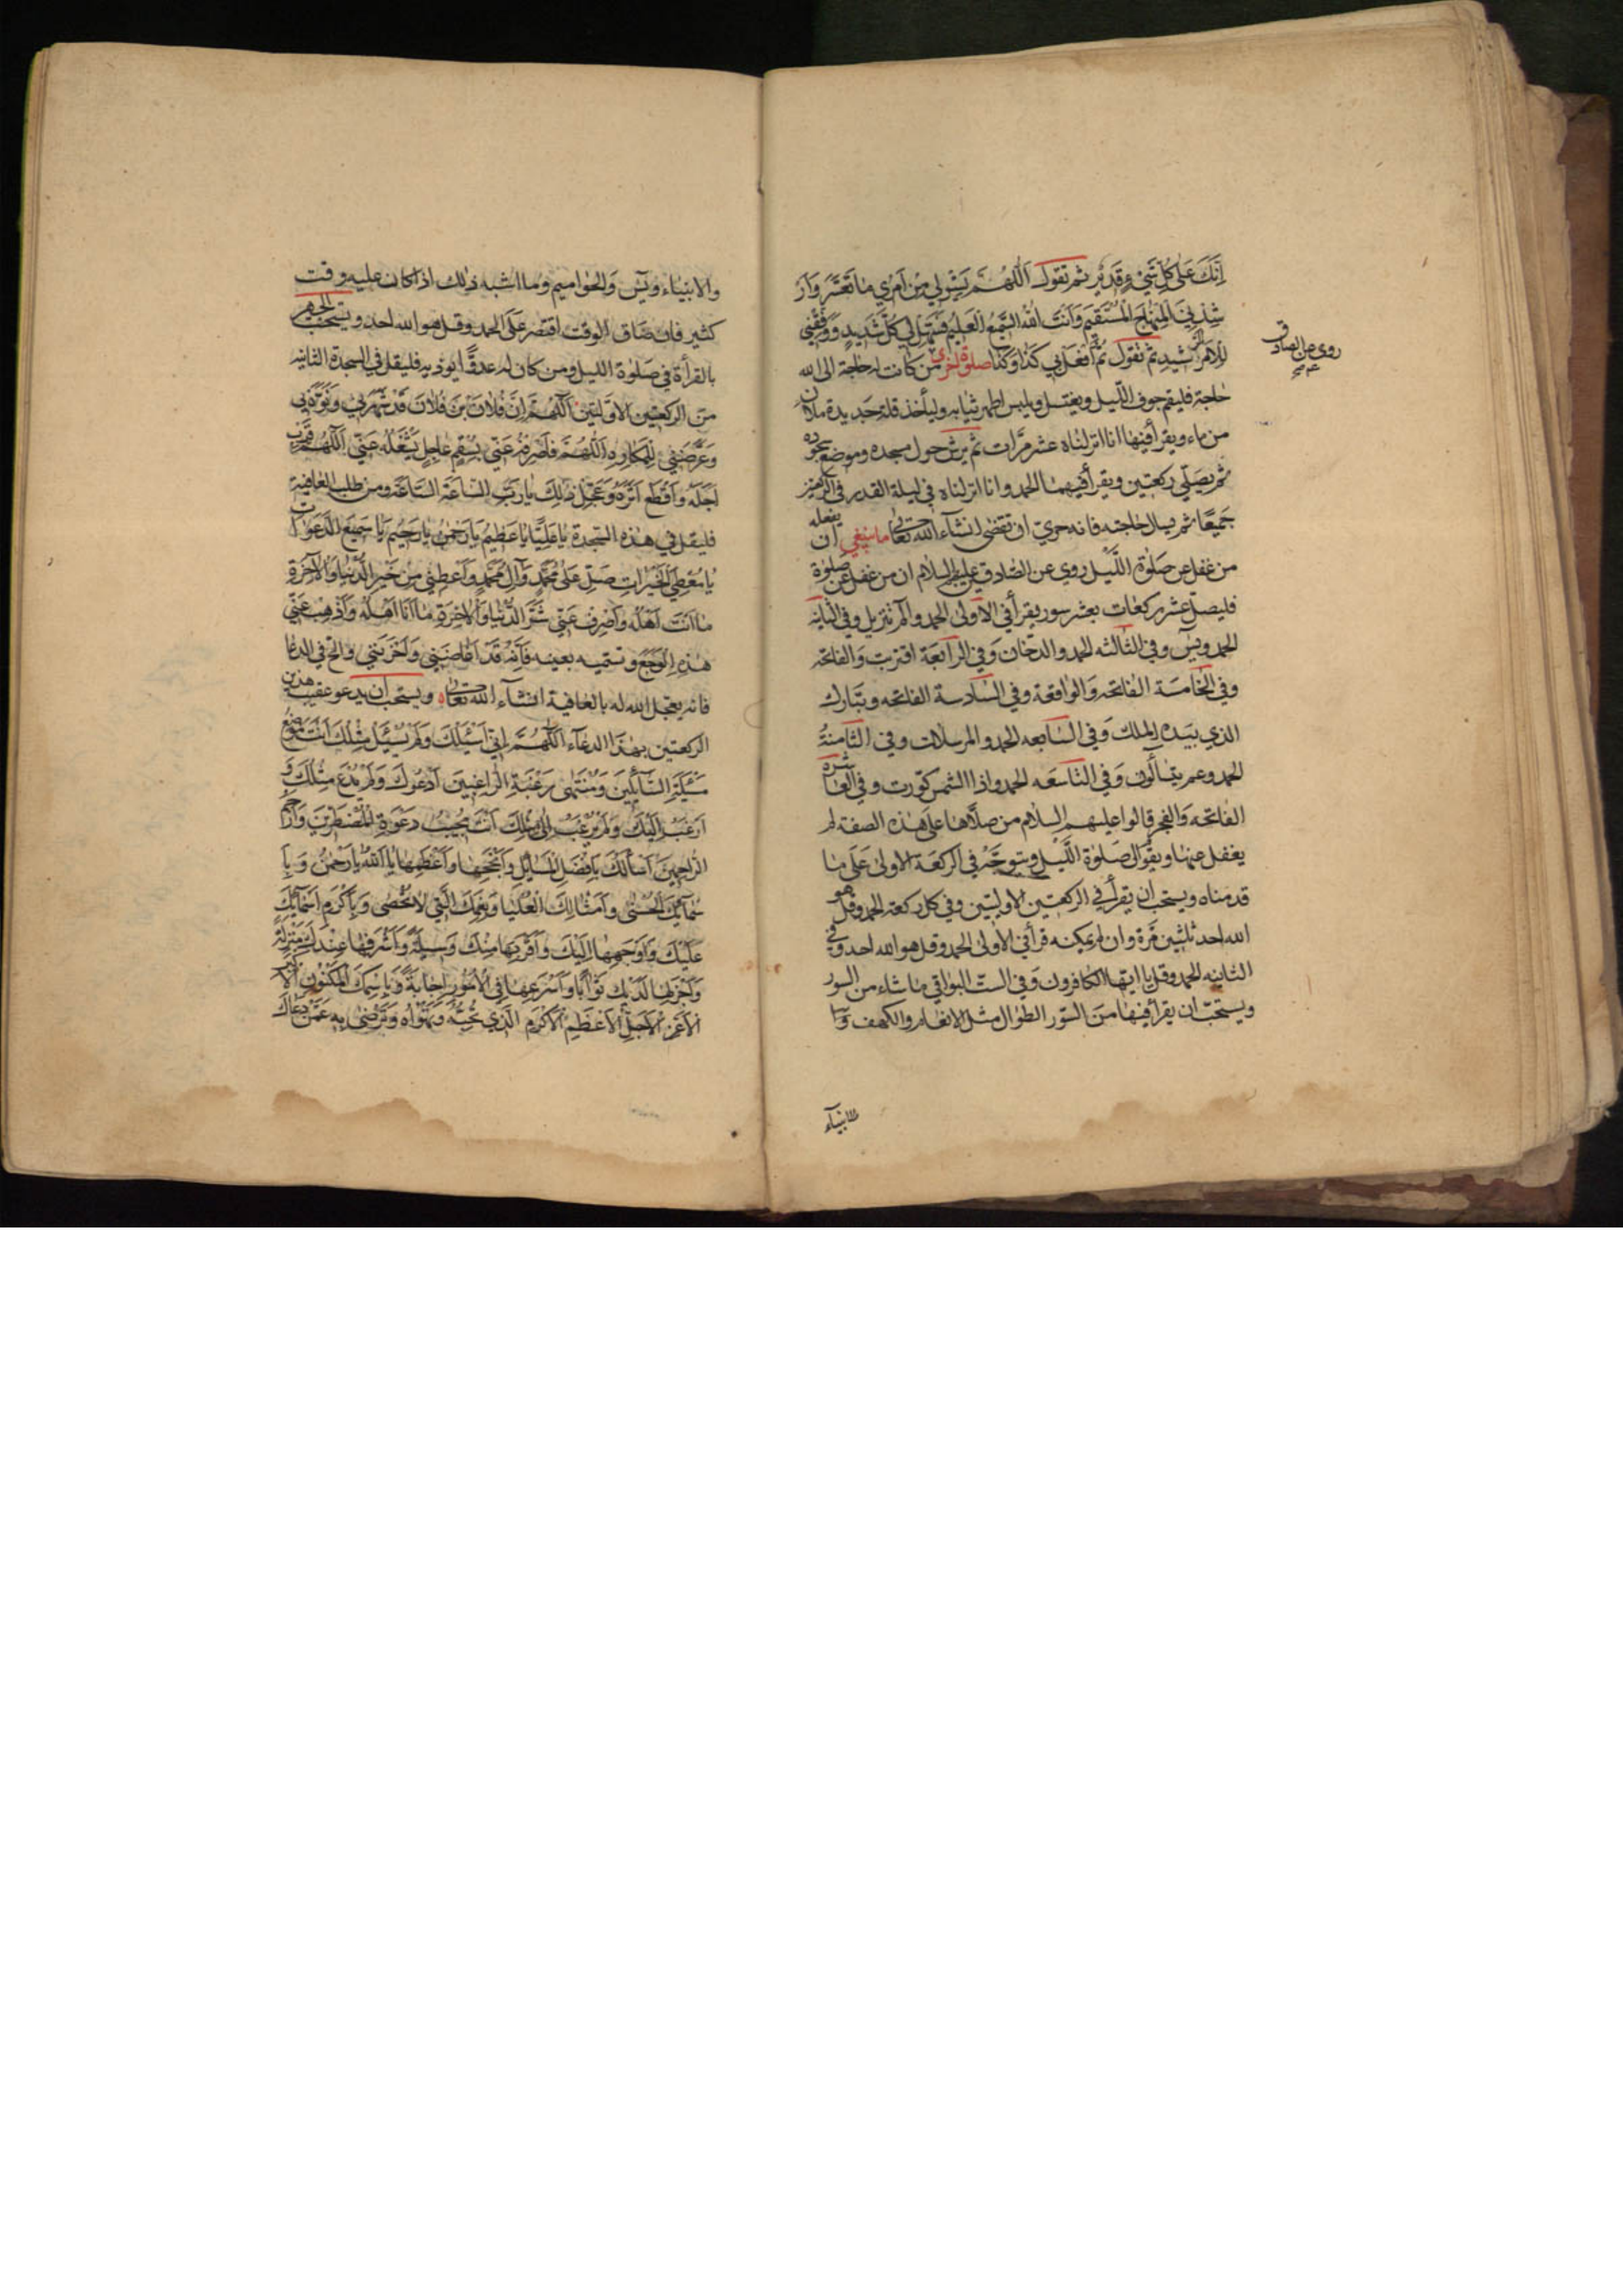 إنك على كل شيء قدير ثم تقول اللهم يسر لي من أمري ما تعسر وار
شدني المنهاج المستقيم وأنت الله السميع العليم فسهل لي كل شديد ووفقني
للأمر الرشيد ثم تقول افعل بي كذا وكذا صلوة اخرى من كانت له حاجة الى الله
حاجة فليقم جوف الليل ويغتسل ويلبس اطهر ثيابه وليأخذ قلة جديدة ملآن
من ماء ويقرأ فيها انا انزلناه عشر مرات ثم يرش حول مسجده وموضع سجوده
ثم يصلي ركعتين ويقرأ فيهما الحمد وانا انزلناه في ليلة القدر في الركعتين
جميعا ثم يسال حاجته فانه حري ان تقضى انشاء الله تعالى ما ينبغي ان يفعله
من غفل عن صلوة الليل روي عن الصادق عليه السلام ان من غفل عن صلوة
فليصل عشر ركعات بعشر سور يقرأ في الاولى الحمد والم تنزيل وفي الثانيه
الحمد ويس وفي الثالثه الحمد والدخان وفي الرابعة الفاتحه واقتربت
وفي الخامسة الفاتحه والواقعة وفي السادسة الفاتحه وتبارك
الذي بيده الملك وفي السابعه الحمد والمرسلات وفي الثامنة
الحمد وعم يتسألون وفي التاسعه الحمد واذا الشمس كورت وفي العاشره
الفاتحه والفجر قالوا عليهم السلام من صلاها على هذه الصفة لم
يغفل عنها ويقوّل صلوة الليل ويتوجه في الركعة الاولى على ما
قدمناه ويستحب ان يقرأ في الركعتين الاوليتين وفي كل ركعة الحمد وقل هو
الله احد ثلثين مرة وان لم يمكنه قرأ في الاولى الحمد وقل هو الله احد وفي
الثانيه الحمد وقل يا ايها الكافرون وفي الست البواقي ما شاء من السور
ويستحب ان يقرأ فيها من السور الطوال مثل الانعام والكهف و
الانبياء
روى عن الصادق
والانبياء ويس والحواميم وما اشبه ذلك اذا كان عليه وقت
كثير فان ضاق الوقت اقتصر على الحمد وقل هو الله احد ويستحب الجهر
بالقرأة في صلوة الليل ومن كان له عدو ايوذيه فليقل في السجدة الثانيه
من الركعتين الاوليتين اللهم إن فلان بن فلان قد شهرني ونوه بي
وعرضني للمكاره اللهم فاصرفه عني بسقم عاجل يشغله عني اللهم قرب
اجله واقطع اثره وعجل ذلك يا رب الساعة الساعة ومن طلب العافية
فليقل في هذه السجدة يا علي يا عظيم يا رحمن يا رحيم يا سميع الدعوات
يا معطي الخيرات صل على محمد وآل محمد وأعطني من خير الدنيا والآخرة
ما أنت أهله واصرف عني شر الدنيا والآخرة ما أنا أهله وأذهب عني
هذه الوجع وتسميه بعينه فإنه قد وأحزنني والح في الدعا
فانه يعجل الله له بالعافية انشاء الله تعالى ويستحب ان يدعو عقيب هذين
الركعتين بهذا الدعاء اللهم إني أسئلك ولم يسئل مثلك أنت موضع
مسئلة السائلين ومنتهى رغبة الراغبين أدعوك ولم يدع مثلك و
أرغب إليك ولم يرغب إلى مثلك أنت مجيب دعوة المضطرين وأرحم
الراحمين أسألك بأفضل المسائل وأنجحها وأعظمها يا الله يا رحمن و بأ
سمائك الحسنى وأمثالك العليا ونعمك التي لا تحصى و بأكرم أسمائك
عليك وأوجهها إليك وأقربها منك وسيلة وأشرفها عندك منزلة
وأجزلها لديك ثوابا وأسرعها في الأمور إجابة وبإسمك المكنون الأكبر
الأعز الأجل الأعظم الأكرم الذي تحبه وتهواه وترضى به عمن دعاك